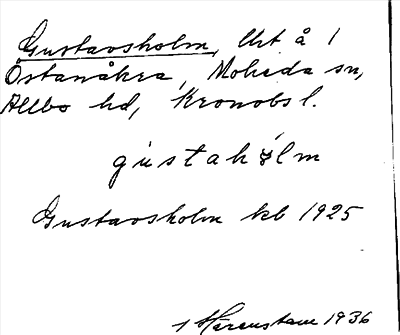 Gustavsholm, lht å 1
Östanåkra, Moheda sn,
Allbo hd, Kronobs l.
gústahòlm
Gustavsholm kb 1925
1936